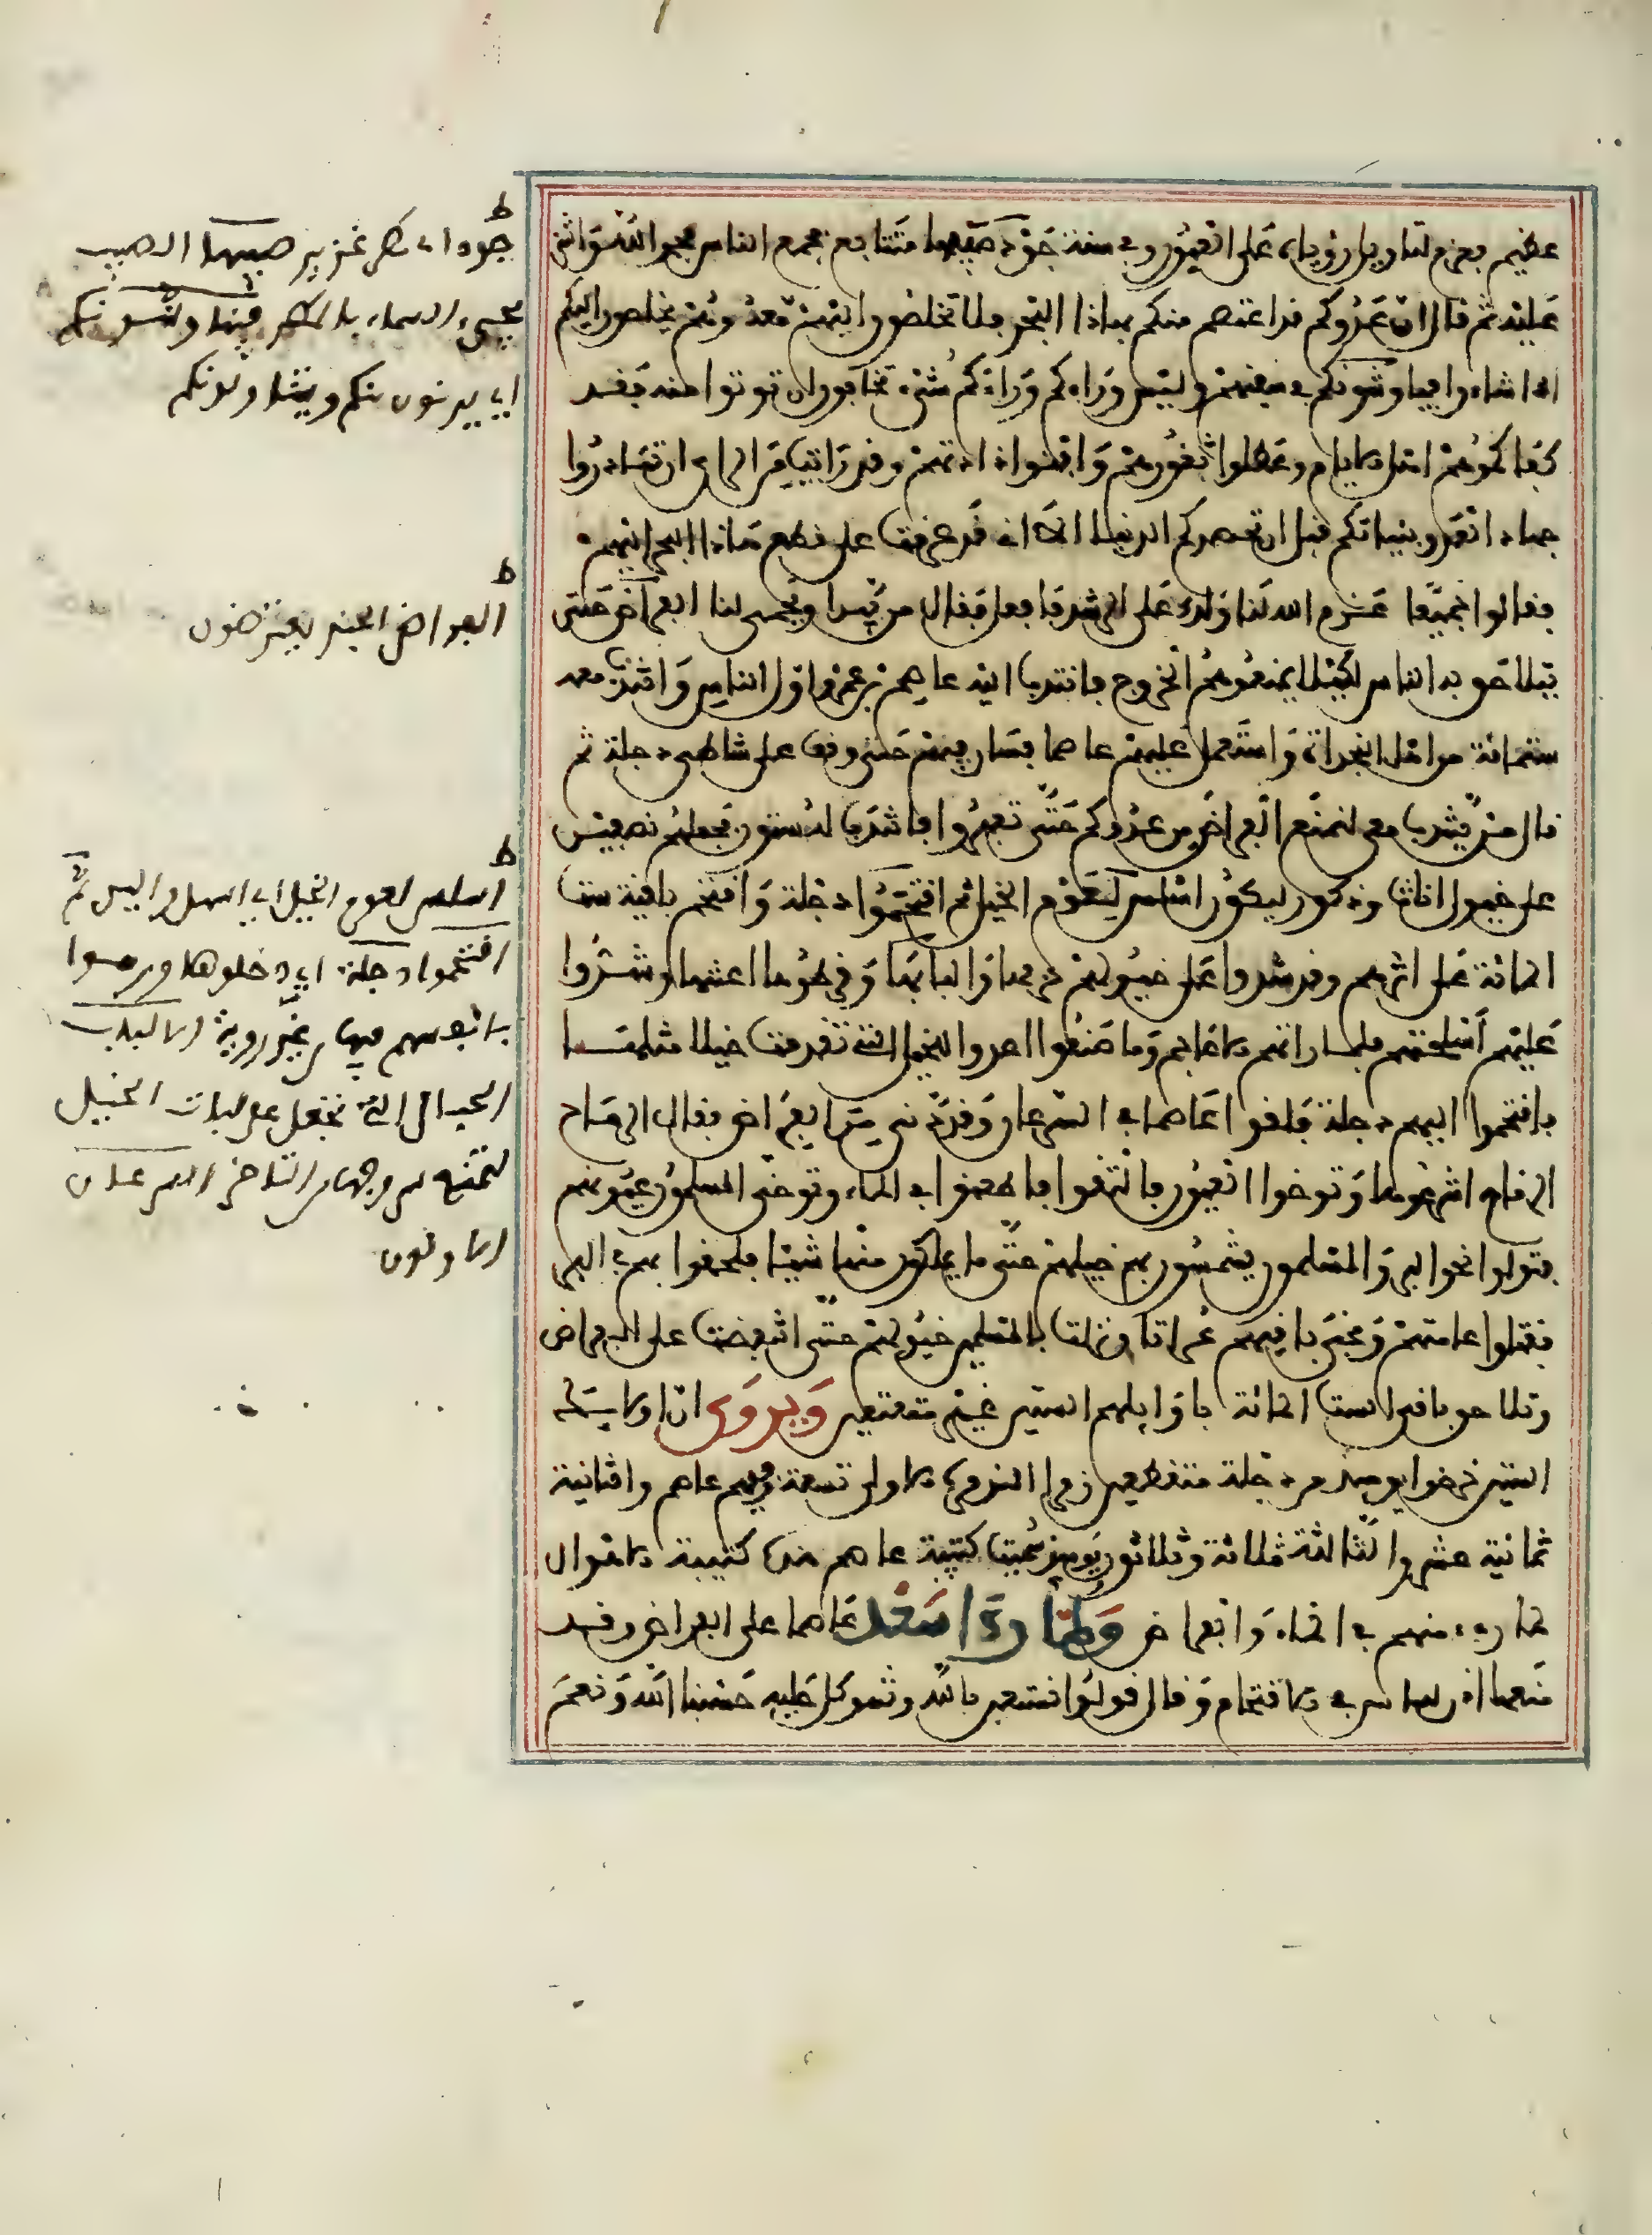 عظيم بعزم لتاويل رؤياه على العبور وفي سنة جود صيبها متتابع فجمع الناس فحمد الله واثنى
عليه ثم قال ان عدوكم قد اعتصم منكم بهاذا البحر فلا تخلصون اليهم معه وهم يخلصون اليكم
اذا شاءوا فيناوشونكم في سفنهم وليس وراءكم شيء تخافون ان توتوا منه فقد
كفاكموهم اهل الايام وعطلوا ثغورهم وافنوا ذادتهم وقد رايت من الراي ان تبادروا
جهاد العدو بنياتكم قبل ان تحصركم الدنيا الا اني قد عزمت على قطع هاذا البحر اليهم
فقالوا جميعا عزم الله لنا ولك على الرشد فافعل فقال من يبدا ويحمي لنا الفراض حتى
تتلاحق به الناس لكيلا يمنعوهم الخروج فانتدب اليه عاصم بن عمرو اول الناس وانتدب معه
ستمائة من اهل النجدات واستعمل عليهم عاصما فسار بهم حتى وقف على شاطىء دجلة ثم
قال من ينتدب معي لنمنع الفراض من عدوكم حتى تعبروا فانتدب له ستون فجعلهم نصفين
على خيول اناث وذكور ليكون اسلس لعوم الخيل ثم اقتحموا دجلة واقتحم بقية الست
المائة على اثرهم وقد شدوا على خيولهم حزمها والبابها وقرطوها اعنتها وشدوا
عليهم اسلحتهم فلما راتهم الاعاجم وما صنعوا اعدوا للخيل التي تقدمت خيلا مثلها
فاقتحموا اليهم دجلة فلقوا عاصما في السرعان وقد دنى من الفراض فقال الرماح
الرماح اشرعوها وتوخوا العيون فالتقوا فاطعنوا في الماء وتوخى المسلمون عيونهم
فتولوا نحو البر والمسلمون يشمسون بهم خيلهم حتى ما يملكون منها شيئا فلحقوا بهم في البر
فقتلوا عامتهم ونجى باقيهم عورانا وتزلزلت بالمسلمين خيولهم حتى انتفضت على الفراض
وتلاحق باقي الست المائة باوايلهم الستين غير متعتعين ويروى ان اولايك
الستين خرضوا يوميذ من دجلة منقطعين زمرا الزمرة الاولى تسعة فيهم عاصم والثانية
ثمانية عشر والثالثة ثلاثة وثلاثون يوميذ سميت كتيبة عاصم هذه كتيبة الاهوال
لما راى منهم في الماء والفراض ولما راى سعد عاصما على الفراض وقد
منعها اذن للناس في الاقتحام وقال قولوا نستعين بالله ونتوكل عليه حسبنا الله ونعم
ط
جود اي مطر غزير صيبها الصيب
مجيء السماء بالمطر فيناوشونكم
اي يدنون منكم ويتناولونكم
ط
الفراض
ط
اسلس لعوم الخيل اي اسهل والين ثم
اقتحموا دجلة اي دخلوها ورموا
بانفسهم فيها بغير روية الالباب
الحبال التي تجعل على لبات الخيل
لتمنع سروجها من التاخر السرعان
الاولون